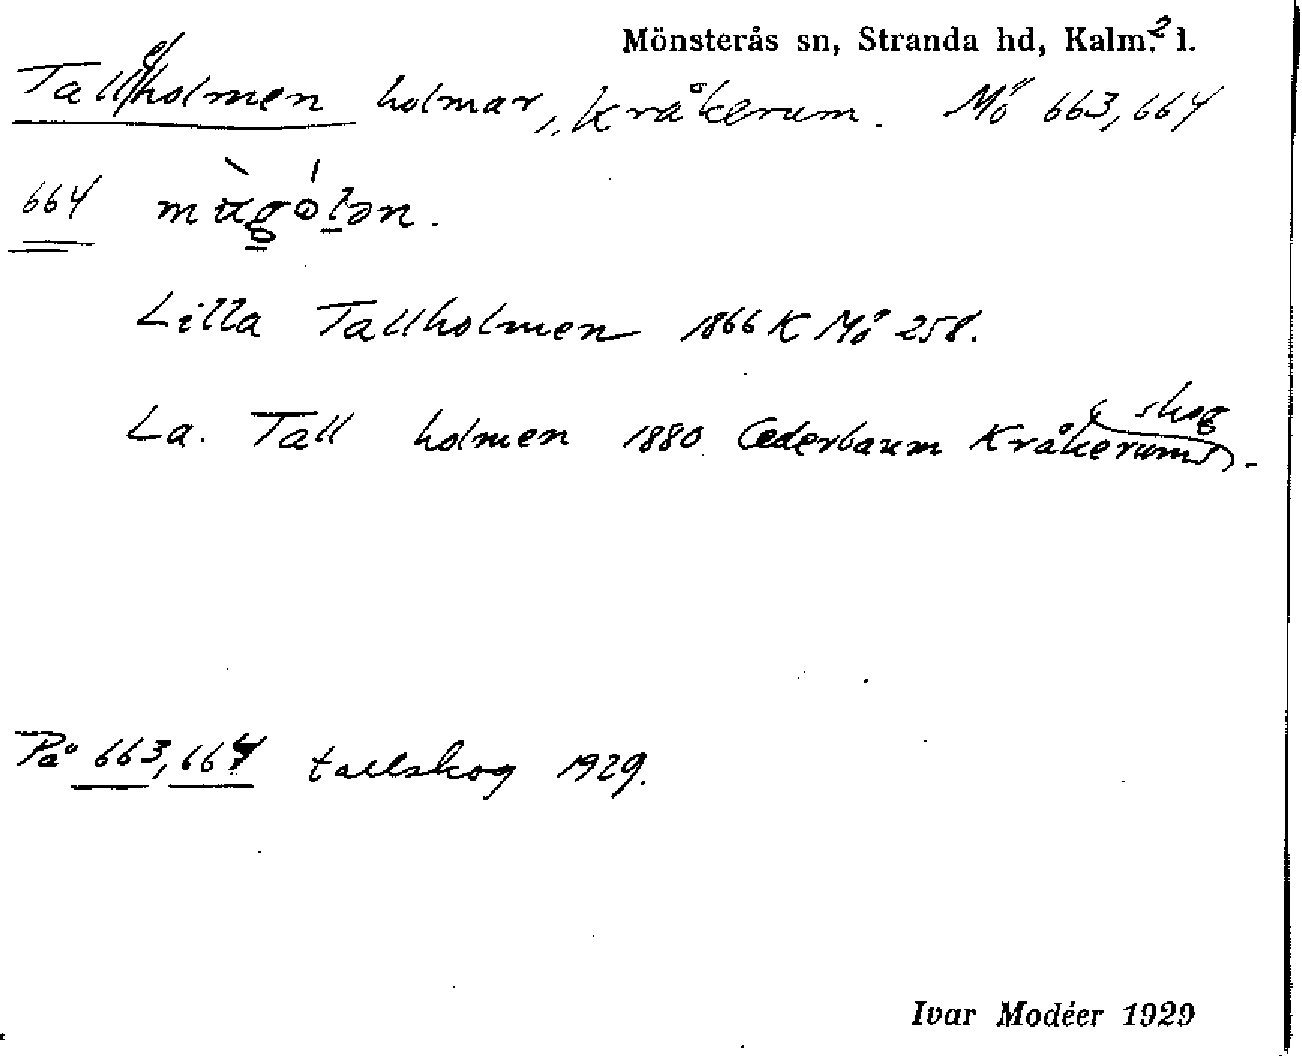 Mönsterås sn, Stranda hd, Kalm. 2 l.
Tallholmen holmar, Kråkerum. Mö 663, 664
664
Lilla Tallholmen 1866 K Mö 258.
La. Tall holmen 1880 Cederbaum Kråkerums skog.
På 663, 664 tallskog 1929.
Ivar Modéer 1929